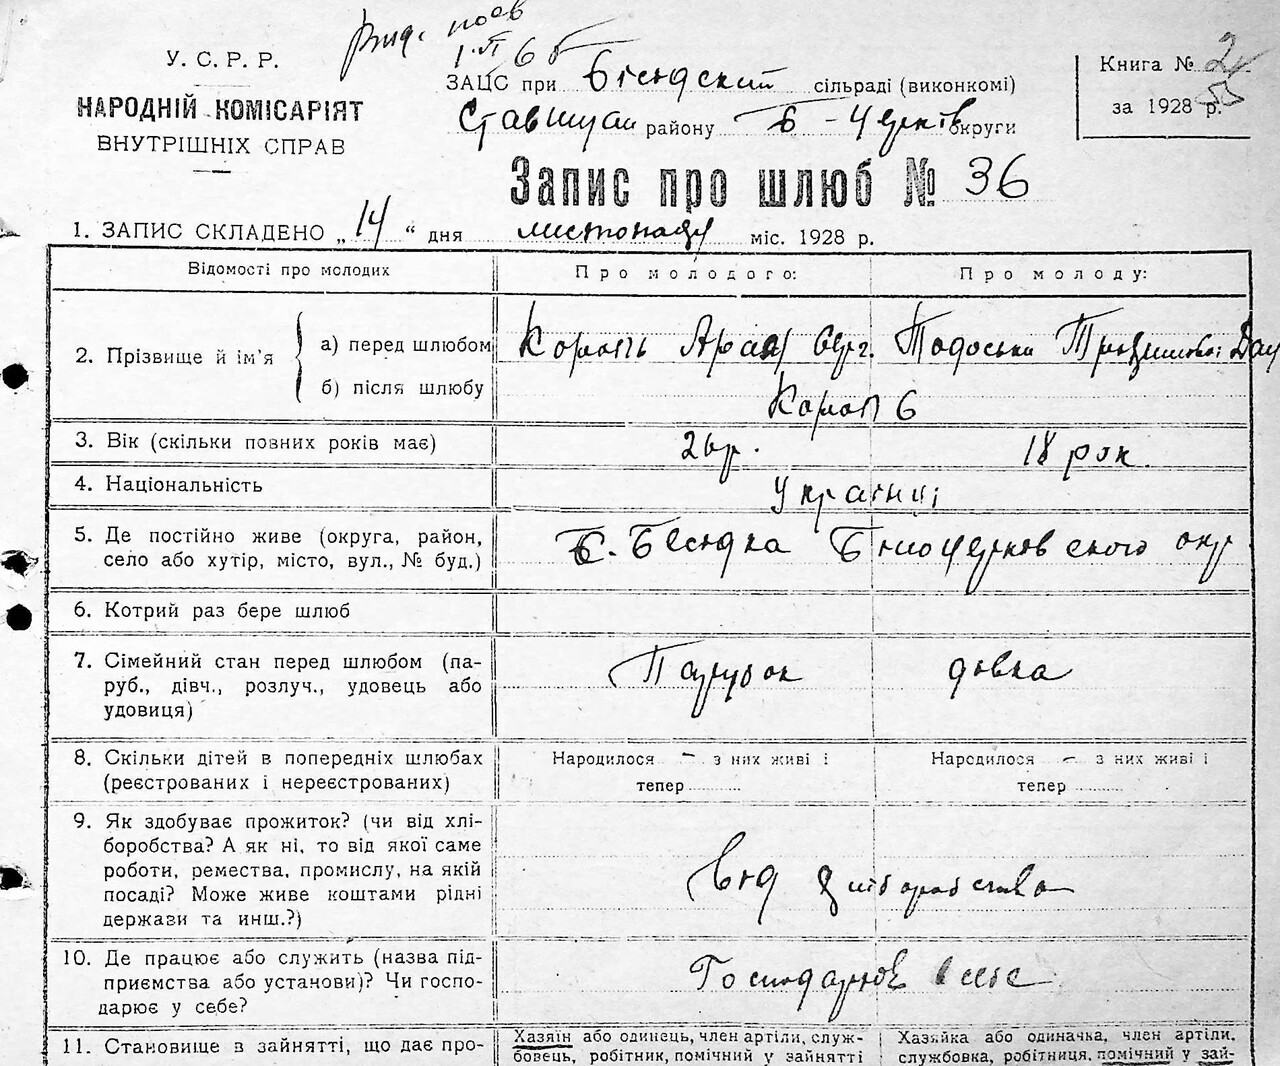 У. С. Р. Р.
НАРОДНІЙ КОМІСАРІЯТ
ВНУТРІШНІХ СПРАВ
ЗАЦС при сільраді (виконкомі)
району Б-Церків округи
Книга №
за 1928 р.
Запис про шлюб № 36
1. ЗАПИС СКЛАДЕНО „14“ дня листопаду міс. 1928 р.
Відомості про молодих
Про молодого:
Про молоду:
2. Прізвище й ім'я
а) перед шлюбом
б) після шлюбу
Тодоська
3. Вік (скільки повних років має)
26 р.
18 рок.
4. Національність
Українці
5. Де постійно живе (округа, район,
село або хутір, місто, вул., № буд.)
с. Бесідка Білоцерковського окр
6. Котрий раз бере шлюб
7. Сімейний стан перед шлюбом (па-
руб., дівч., розлуч., удовець або
удовиця)
Парубок
дівка
8. Скільки дітей в попередніх шлюбах
(реєстрованих і нереєстрованих)
Народилося – з них живі і
тепер
Народилося – з них живі і
тепер
9. Як здобуває прожиток? (чи від хлі-
боробства? А як ні, то від якої саме
роботи, ремества, промислу, на якій
посаді? Може живе коштами рідні
держави та инш.?)
Від хліборобства
10. Де працює або служить (назва під-
приємства або установи)? Чи госпо-
дарює у себе?
в себе
11. Становище в зайнятті, що дає про-
Хазяїн або одинець, член артіли, служ-
бовець, робітник, помічний у зайнятті
Хазяйка або одиначка, член артіли,
службовка, робітниця, помічний у зай-